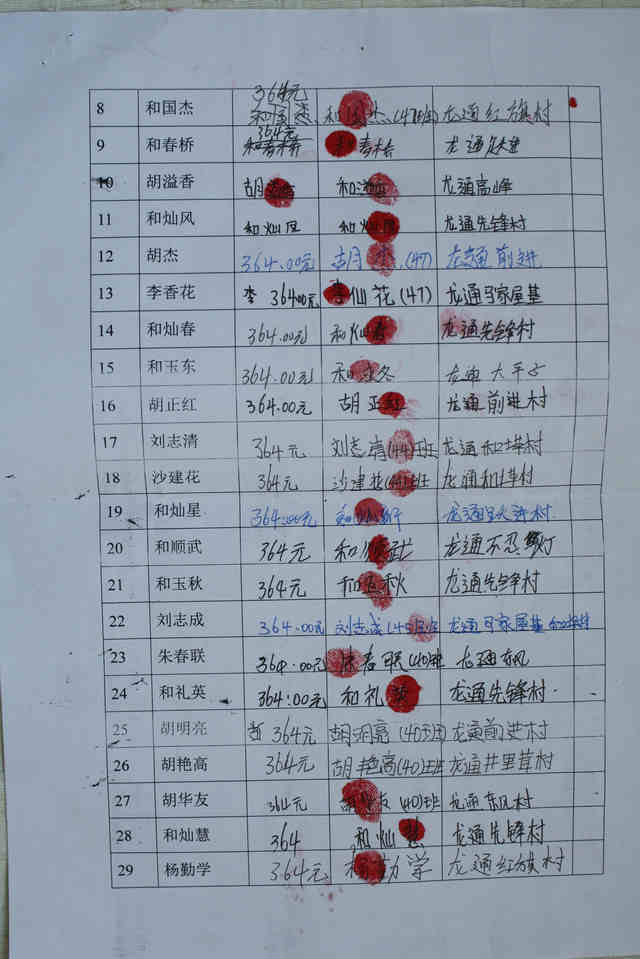 8 和国杰 364元 和国杰 和国杰(47班) 龙通红旗村
9 和春桥 364元 和春桥 和春桥 龙通
10 胡溢香 胡溢香 和溢香 龙通高峰
11 和灿风 和灿凤 和灿凤 龙通先锋村
12 胡杰 364.00元 胡杰(47) 龙通前进
13 李香花 李 364.00元 李仙花(47) 龙通马家屋基
14 和灿春 364.00元 和灿春 龙通先锋村
15 和玉东 364.00元 和玉冬 龙通大平子
16 胡正红 364.00元 胡正红 龙通前进村
17 刘志清 364元 刘志清(44)班 龙通和
18 沙建花 364元 沙建花(44)班 龙通和
19 和灿星 364.00元 龙通跃进村
20 和顺武 364元 和顺武 龙通不忍
21 和玉秋 364元 和玉秋 龙通先锋村
22 刘志成 364.00元 刘志成 龙通马家屋基
23 朱春联 364.00元 朱春联(40)班 龙通东风
24 和礼英 364:00元 和礼英 龙通先锋村
25 胡明亮 364元 胡明亮(40班) 龙通前进村
26 胡艳高 364元 胡艳高(40)班 龙通井里茸村
27 胡华友 364元 胡华友(40)班 龙通东风村
28 和灿慧 364 和灿慧 龙通先锋村
29 杨勤学 364元 杨勤学 龙通红旗村